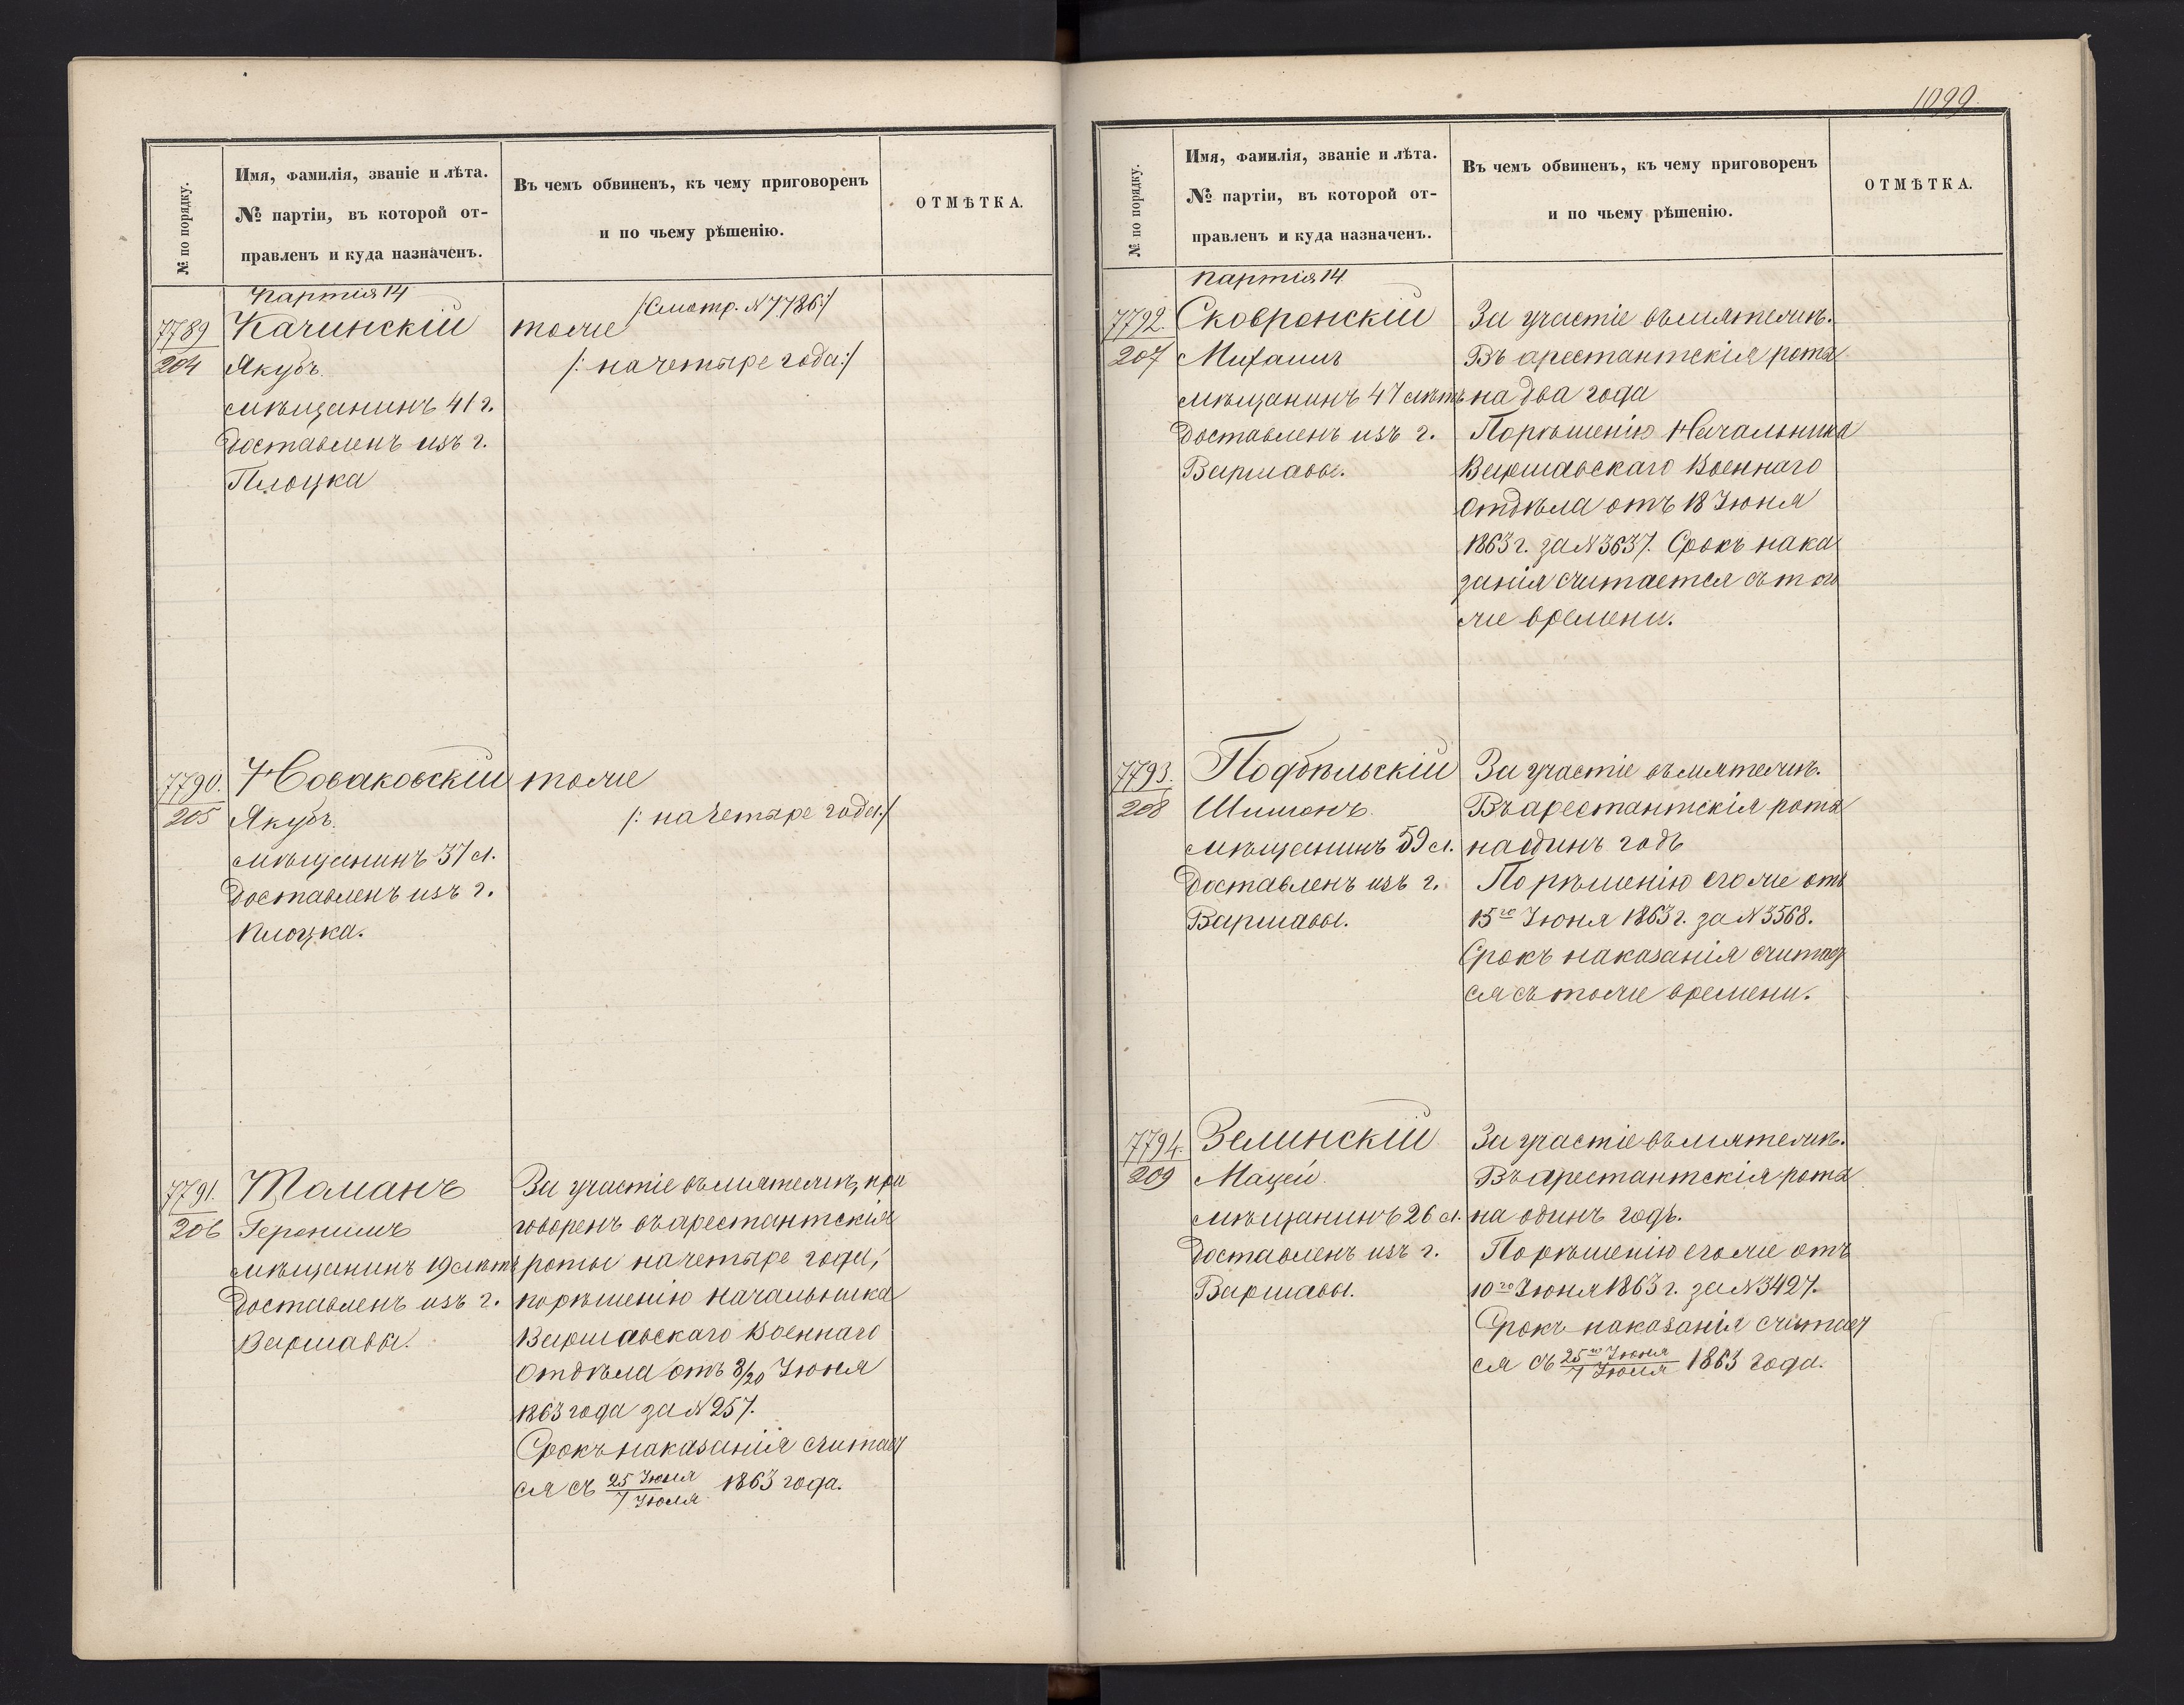 № по порядку.
Имя, фамилія, званіе и лѣта.
№ партіи, въ которой от-
правленъ и куда назначенъ.
Въ чемъ обвиненъ, къ чему приговоренъ
и по чьему рѣшенію.
ОТМѢТКА.
Партія 14
7789
204
Качинскій
Якубъ.
мѣщанинъ 41 г.
доставленъ изъ г.
Плоцка
/:Смотр. N 7786:/
тоже
/: на четыре года:/
7790.
205
Новаковскій
Якубъ.
мѣщанинъ 37 л.
доставленъ изъ г.
Плоцка.
тоже
/: на четыре года:/
7791.
206
Томанъ
Геронимъ
мѣщанинъ 19 лѣтъ
доставленъ изъ г.
Варшавы.
За участіе въ мятежѣ, при
говоренъ въ арестантскія
роты на четыре года,
по рѣшенію Начальника
Варшавскаго Военнаго
Отдѣла отъ 8/20 Іюня
1863 года за N 257.
Срокъ наказанія считает
ся съ 25 Іюня/7 Іюля 1863 года.
1099.
№ по порядку.
Имя, фамилія, званіе и лѣта.
№ партіи, въ которой от-
правленъ и куда назначенъ.
Въ чемъ обвиненъ, къ чему приговоренъ
и по чьему рѣшенію.
ОТМѢТКА.
Партія 14
7792.
207
Сковронскій
Михаилъ
мѣщанинъ 47 лѣтъ
доставленъ изъ г.
Варшавы.
За участіе въ мятежѣ.
Въ арестантскія роты
на два года
По рѣшенію Начальника
Варшавскаго Военнаго
Отдѣла отъ 18 Іюня
1863 г. за N 3637. Срокъ нака
занія считается съ того
же времени.
7793.
208
Подбѣльскій
Шимонъ.
мѣщанинъ 59 л.
доставленъ изъ г.
Варшавы.
За участіе въ мятежѣ.
Въ арестантскія роты
на одинъ годъ
По рѣшенію его же отъ
15го Іюня 1863 г. за N 3568.
Срокъ наказанія считает
ся съ тоже времени.
7794.
209
Зелинскій
Мацей.
мѣщанинъ 26 л.
доставленъ изъ г.
Варшавы.
За участіе въ мятежѣ.
Въ арестантскія роты
на одинъ годъ.
По рѣшенію его же отъ
10го Іюня 1863 г. за N 3427.
Срокъ наказанія считает
ся съ 25го Іюня/7 Іюля 1863 года.